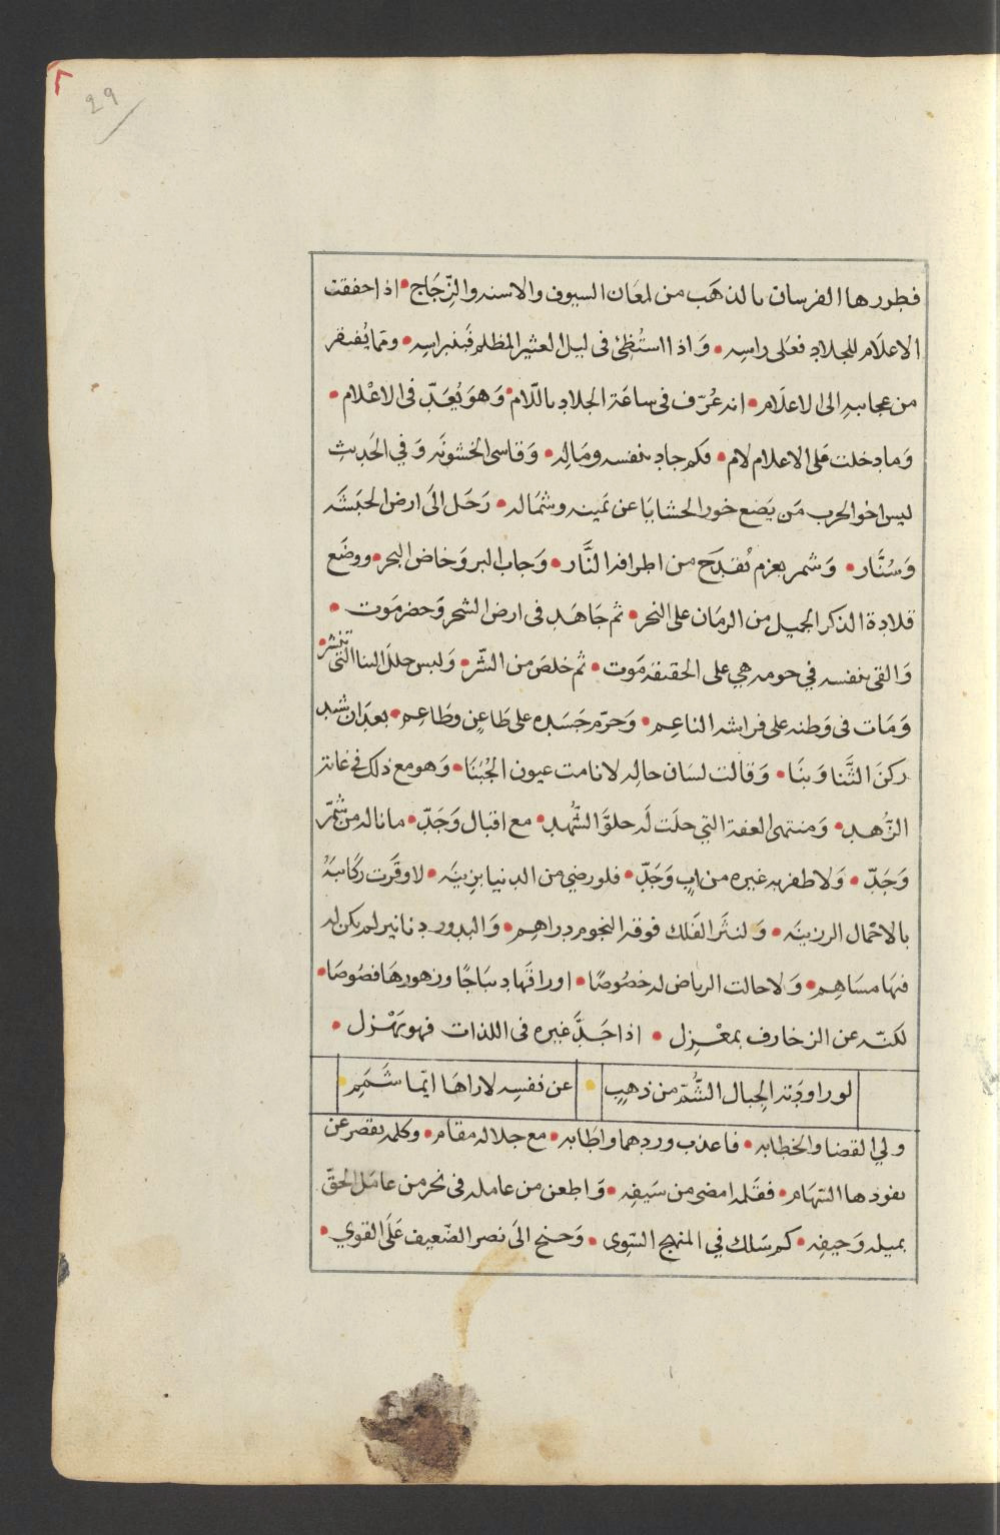 29
فطورها الفرسان بالذهب من لمعان السيوف والاسنه والزّجَاج • اذا خفقت
الاعلَام للجلادِ فعَلى راسِه • وَاذا استُظِئ فى ليل العثير المظلم فَبنبراسِه • ومَّا يُفتقر
من عجايبهِ الى الاعلَام • انه عُرّف فى ساعَة الجلادِ باللّام • وَهوَ يُعَدّ فى الاعْلام •
وَما دخلت عَلى الاعلام لام • فكم جادَ بنفسه ومَالِه • وَقاسى الخشونَه وَفي الحَديث
ليس اخو الحرب مَن يَضع خور الحشايَا عن يَمينه وشمَاله • رَحَل الَى ارض الحبَشَه
وَسُنَّار • وَشمر بعزم تُقدَح من اطرافه النَّار • وَجاب البر وَخاض البحر • ووضَع
قلادة الذكر الجميل من الزمَان على النحر • ثم جَاهَد فى ارض الشحر وَحضر مَوت •
وَالقى بنفسه في حومه هي على الحقيقه مَوت • ثم خلصَ من الشّر • وَلبس حللَ الثنا التى تنشر •
وَمَات فى وَطنه على فراشه الناعِم • وَحرّم جَسَده على طَاعِن وطَاعِم • بعدَ ان شيد
ركنَ الثَّنا وَبنَا • وَقالت لسَان حالِه لا نامت عيون الجُبَنَا • وَهو مع ذلك في غاية
الزُّهد • وَمنتهى العفة التي حلَت لَه حلوَّ الشُّهد • مع اقبال وَجَدّ • ما ناله من شمّر
وَجَدّ • وَلا ظفر به غيره من ابٍ وَجَدّ • فلو رضي من الدنيا بزينَه • لاوقَرت ركَائبَهُ
بالاحْمال الرزينَه • وَلنثَر الفَلك فوقه النجوم دراهِم • وَالبدور دنانير لم يكن له
فيهَا مسَاهِم • وَلاحالت الرياض له خصُوصًا • اوراقَهَا ديبَاجًا وزهورهَا فصُوصَا •
لكنّه عن الزخارف بمعْزِل • اذا جَدَّ غيره فى اللذات فهو يَهْزل •
لو راودَته الجِبال الشُّمّ من ذهبٍ • عن نفسِه لاراهَا ايّما شَمَمِ •
ولي القضا والخطابه • فاعذب وردهما واطَابه • مع جلاله مقام • وكلمه يقصر عن
نفوذها السّهَام • فقَلمه امضى من سَيفِه • وَاطعن من عامله فى نحر من عامَل الحقّ
بميله وَحيفِه • كم سَلك في المنهج السّوى • وَجنح الَى نصر الضّعيف عَلَى القوي •